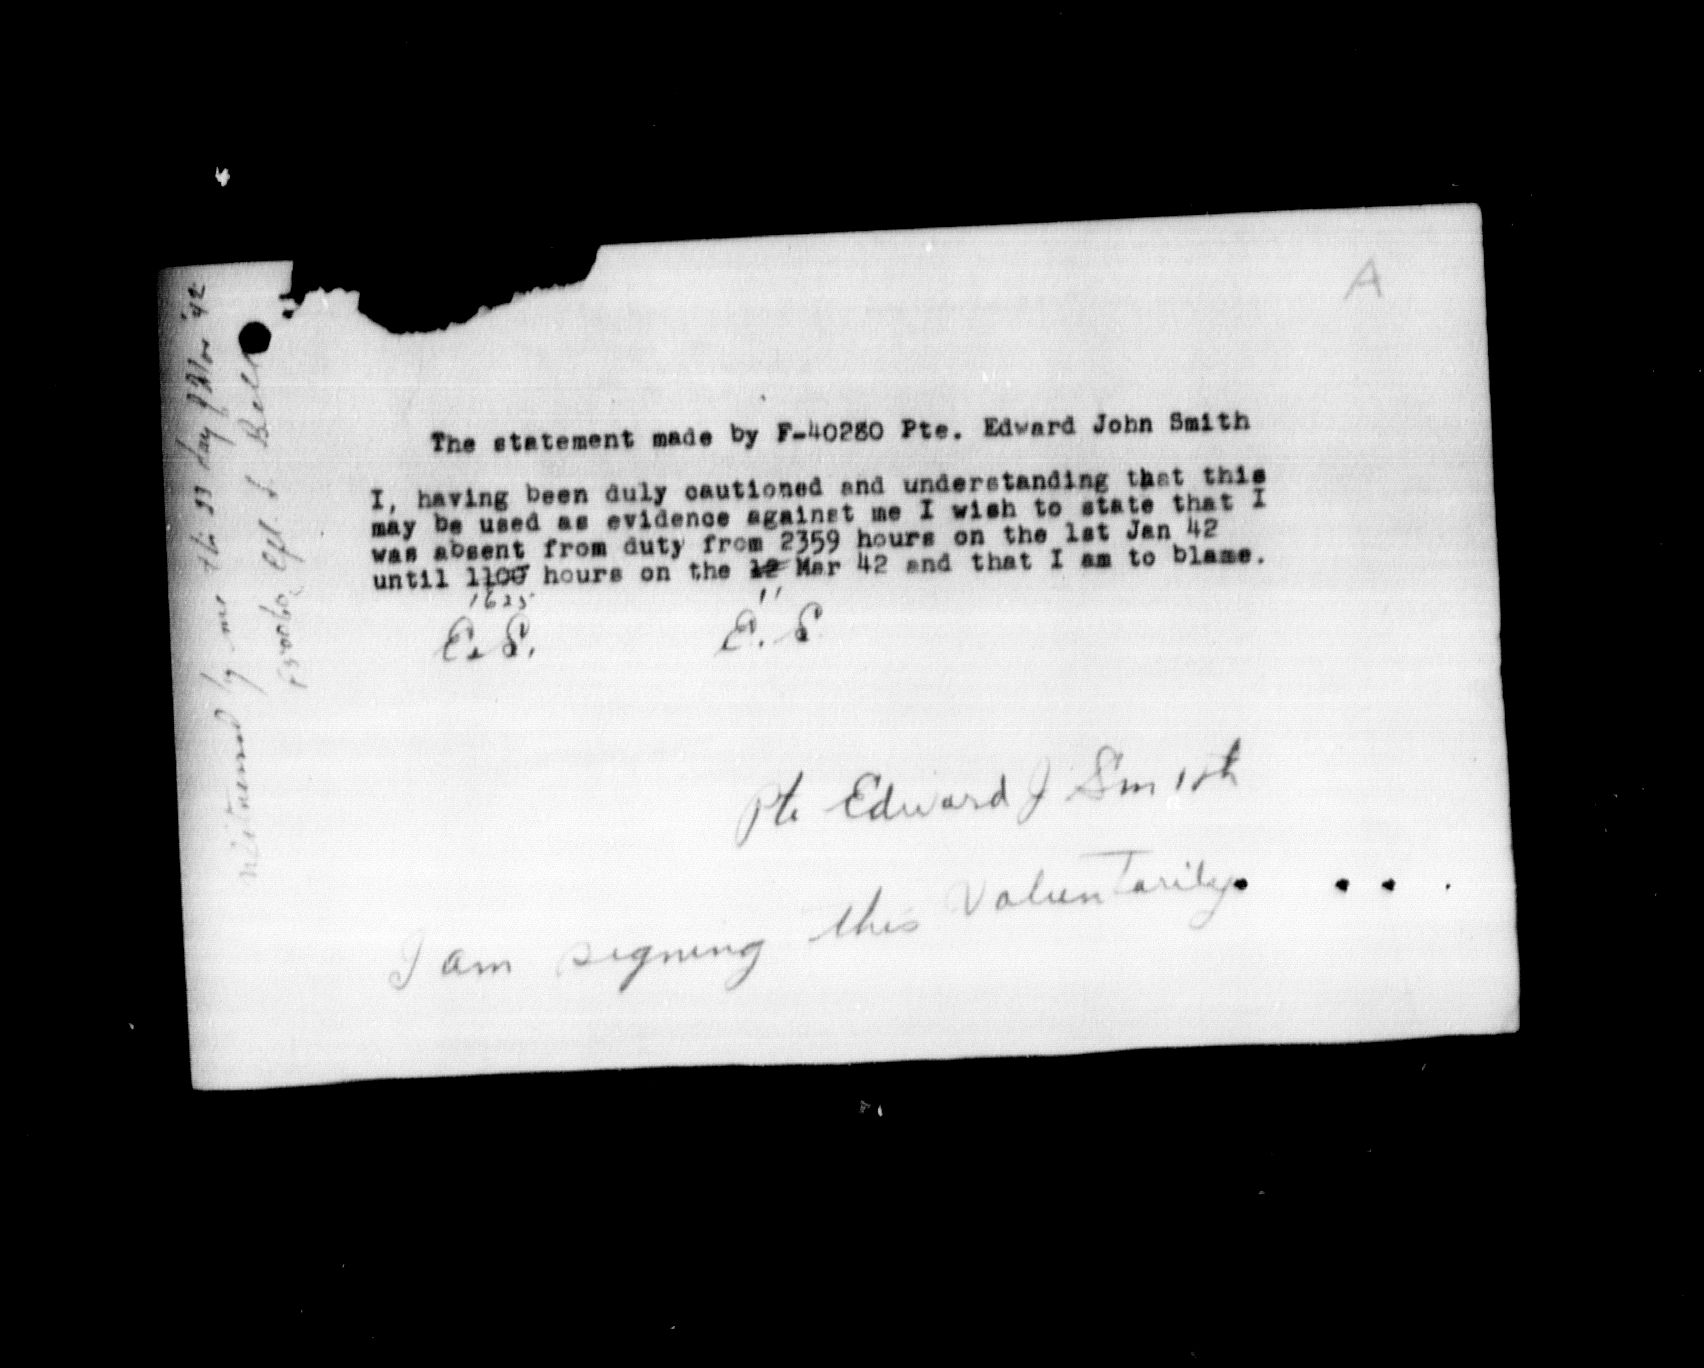 A
The statement made by F-40280 Pte. Edward John Smith
I, having been duly cautioned and understanding that this
may be used as evidence against me I wish to state that I
was absent from duty from 2359 hours on the 1st Jan 42
until 1100 hours on the 12 Mar 42 and that I am to blame.
1625 11
E.S. E.S
Pte Edward J Smith
I am signing this Voluntarily.
witnessed by me this day of Mar '42
Cpl Bell